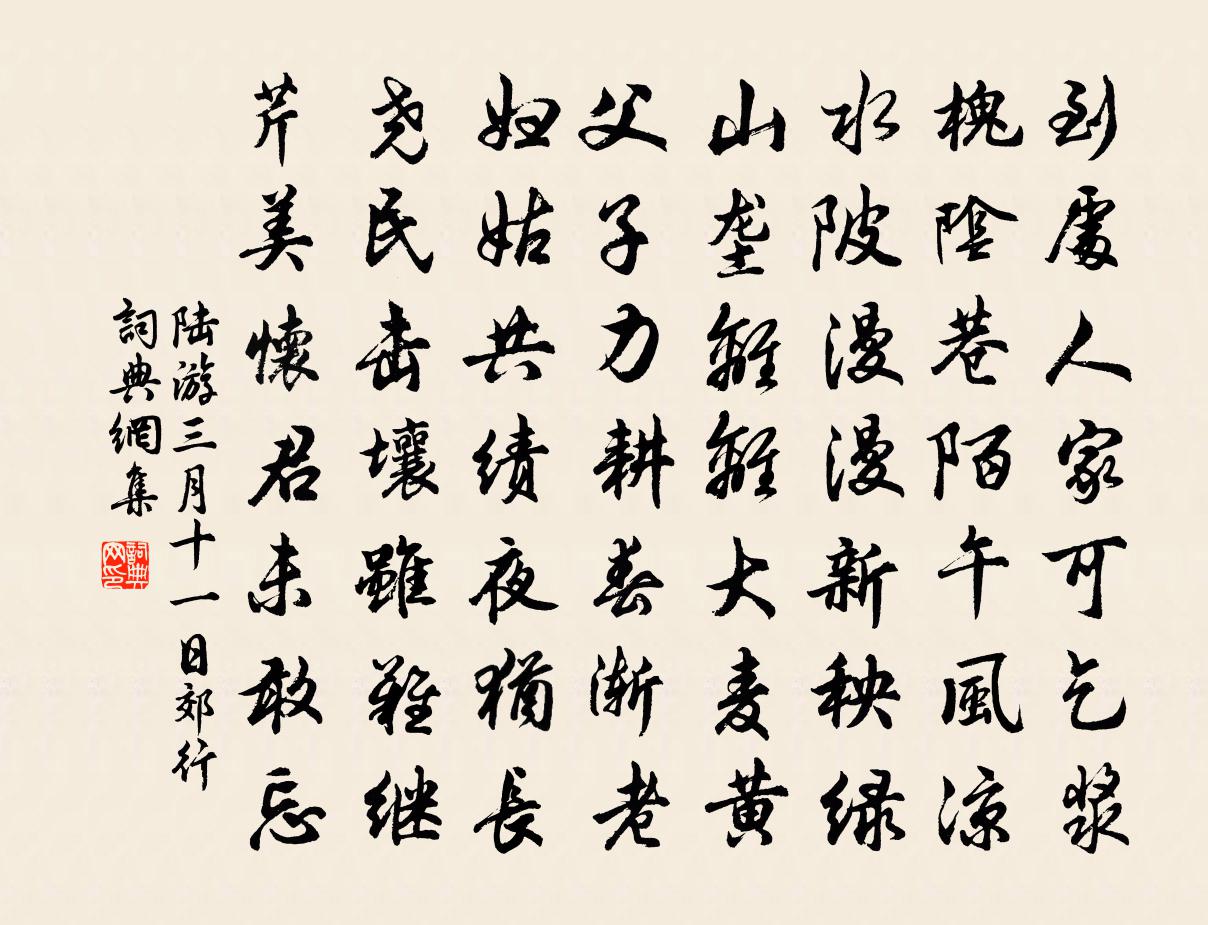 到處人家可乞漿
槐陰巷陌午風涼
水陂漫漫新秧綠
山壟離離大麦黄
父子力耕春漸老
婦姑共績夜猶長
尧民击壤雖難継
芹美懷君未敢忘
陆游三月十一日郊行
詞典網集
詞典网印